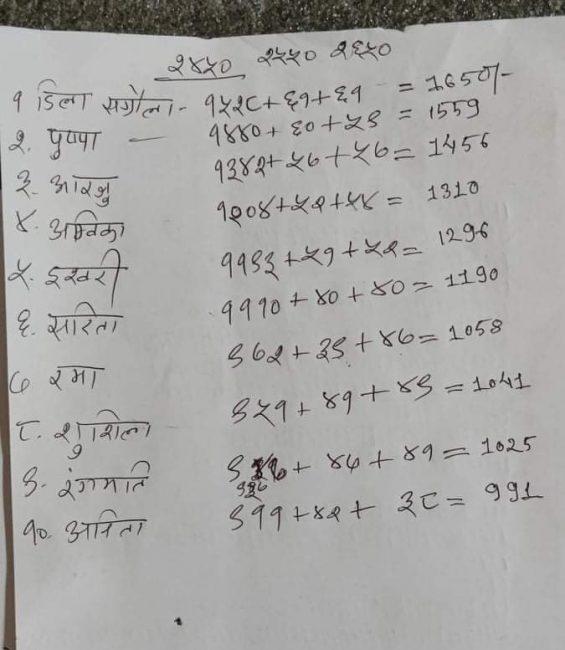 २४५० २५५० २६५०
१ डिला सग्रौला - १५२८+६१+६१ = 1650/-
२. पुष्पा — १४४०+६०+५९ = 1559
३. आरजु १३४२+५७+५७= 1456
४. अम्बिका १२०४+५२+५४ = 1310
५. इश्वरी ११९३+५१+५२= 1296
६. सरिता १११०+४०+४०= 1190
७ रमा ९७२+३९+४७= 1058
८. शुशिला ९५१+४१+४९ =1041
९. रंगमति ९३७+ ४७+४१= 1025
१०. अनिता ९११+४२+ ३८= 991